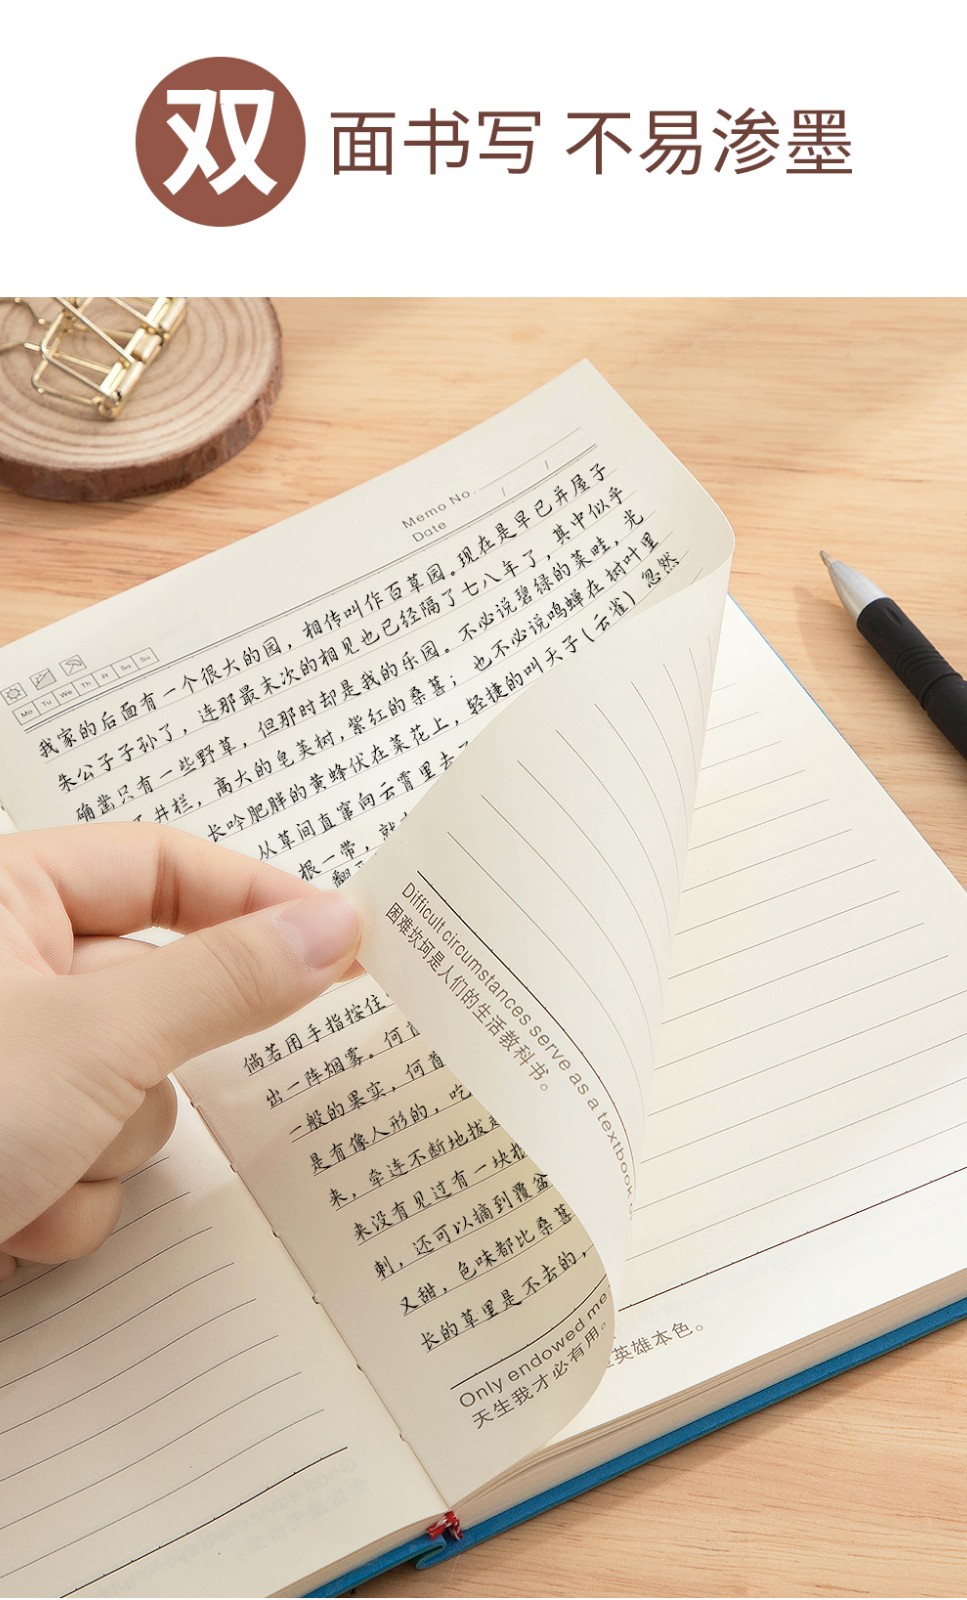 双面书写 不易渗墨
Memo No.
Date
Mo Tu We Th Fr Sa Su
我家的后面有一个很大的园，相传叫作百草园。现在是早已并屋子
朱公子子孙了，连那最末次的相见也已经隔了七八年了，其中似乎
确凿只有一些野草，但那时却是我的乐园。不必说碧绿的菜畦，光
井栏，高大的皂荚树，紫红的桑葚；也不必说鸣蝉在树叶里
长吟肥胖的黄蜂伏在菜花上，轻捷的叫天子（云雀）忽然
从草间直窜向云霄里去
根一带，就
翻
倘若用手指按住
出一阵烟雾。何首
一般的果实，何首
是有像人形的，吃
来，牵连不断地拔
来没有见过有一块
刺，还可以摘到覆盆
又甜，色味都比桑葚
长的草里是不去的，
Only endowed me
天生我才必有用。
Difficult circumstances serve as a textbook
困难坎坷是人们的生活教科书。
英雄本色。